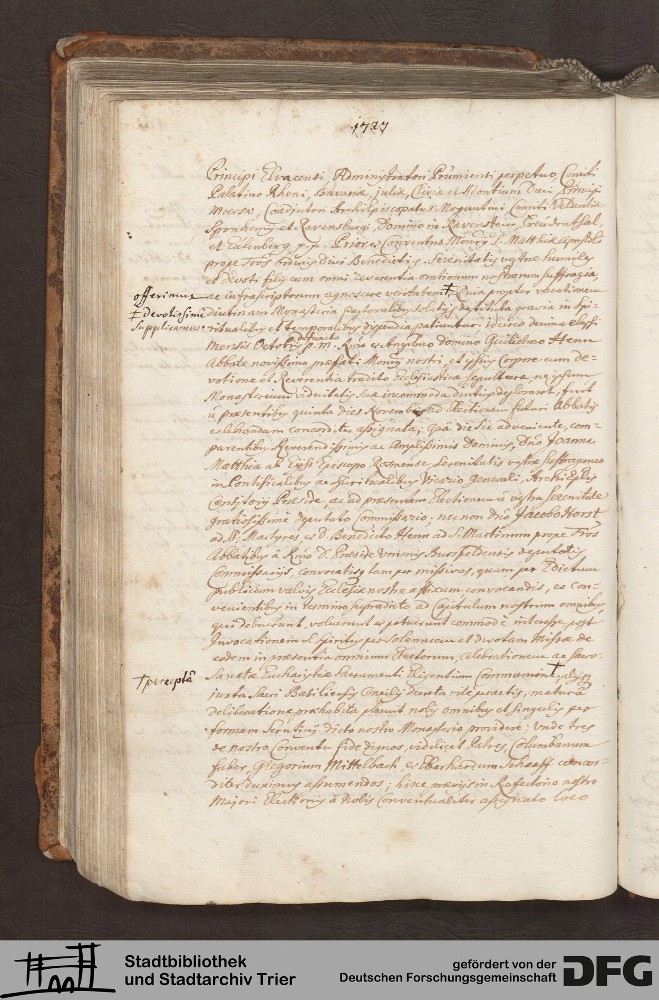 1727
Principi Elvacensi Administratori Prümiensi perpetuo, Comiti
Palatino Rheni, Bavariæ, Juliæ, Cliviæ et Montium Duci, Principi
Moersæ, Coadjutori Archi-Episcopatus Moguntini Comiti Veldentiæ
Sponhemij et Ravensburgi, Domino in Ravenstein, Freudenthal
et p.p. Prior et Conventus Monrij S. Matthiæ Apostoli
prope Tros ordinis Divi Benedicti, Serenitatis vestræ humiles
et devoti filij cum omni reverentia orationum nostrarum suffragia
offerimus
ac infrascriptorum agnoscere veritatem ‡ Quia propter vacationem
‡ devotissime
supplicamus.
diutinam Monasteria pastoralibus solatijs destituta gravia in spi-
ritualibus et temporalibus dispendia patiuntur; idcirco
Mensis Octobris p.m. Rmo et Anselmo domino Guilielmo Henn
defuncto
Abbate novissimo præfati Monrij nostri, et ipsius Corpore cum de-
votione et Reverentia tradito Ecclesiasticæ sepulturæ, ne ipsum
Monasterium viduitatis suæ incommoda diutius deploraret, fuit
à præsentibus quinta dies Novembris ad Electionem futuri Abbatis
celebrandam concorditer assignata; Quâ die sic adveniente, com-
parentibus Reverendissimis ac Amplissimis Dominis, Dno Joanne
Matthia ab Eyss Episcopo Rosmense, Serenitatis vestræ Suffraganeo
in Pontificalibus ac spiritualibus Vicario Generali, Archi-Eplis
Consistorij Præside, ac ad præsentem Electionem à vestra Serenitate
gratiosissimè deputato Commissario; necnon dno Jacobo Horst
ad Martyres, et d. Benedicto Henn ad S. Martinum prope Tros
Abbatibus à Rmo D. Præside Unionis Bursfeldensis deputatis
Commissarijs, convocatis tam per missivas, quam per Edictum
publicum valvis Ecclesiæ nostræ affixum convocandis, et con-
venientibus in termino supradicto ad Capitulum nostrum omnibus,
qui debuerunt, voluerunt et potuerunt commodè interesse, post
Invocationem S. Spiritus per solemnem et devotam Missæ de
eodem in præsentia omnium Electorum, celebrationem ac sacro-
Sanctæ Eucharistiæ Sacramenti Eligentium Communionem †
† perceptâ
iuxta Sacri Basiliensis Concilij decreta ritè peractis, maturâ
deliberatione præhabita placuit nobis omnibus et singulis per
formam Scrutinij dicto nostro Monasterio providere; Unde tres
de nostro Conventu fide dignos, videlicet Patres, Columbanum
faber, Gregorium Mittelbach, et Eberhardum Schaaff concor-
diter duximus assumendos; hinc prævijs in Refectorio nostro
Majori Electionis à Nobis Conventualiter assignato loco
Stadtbibliothek
und Stadtarchiv Trier
gefördert von der
Deutschen Forschungsgemeinschaft
DFG